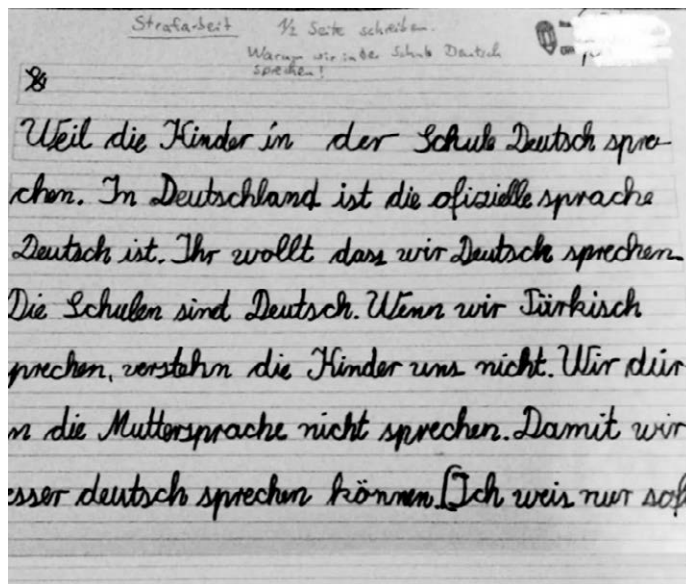 Strafarbeit 1/2 Seite schreiben.
Warum wir in der Schule Deutsch
sprechen!
Weil die Kinder in der Schule Deutsch spre-
chen. In Deutschland ist die ofizielle sprache
Deutsch ist. Ihr wollt dass wir Deutsch sprechen
Die Schulen sind Deutsch. Wenn wir Türkisch
prechen, verstehn die Kinder uns nicht. Wir dür
n die Muttersprache nicht sprechen. Damit wir
esser deutsch sprechen können. [Ich weis nur so